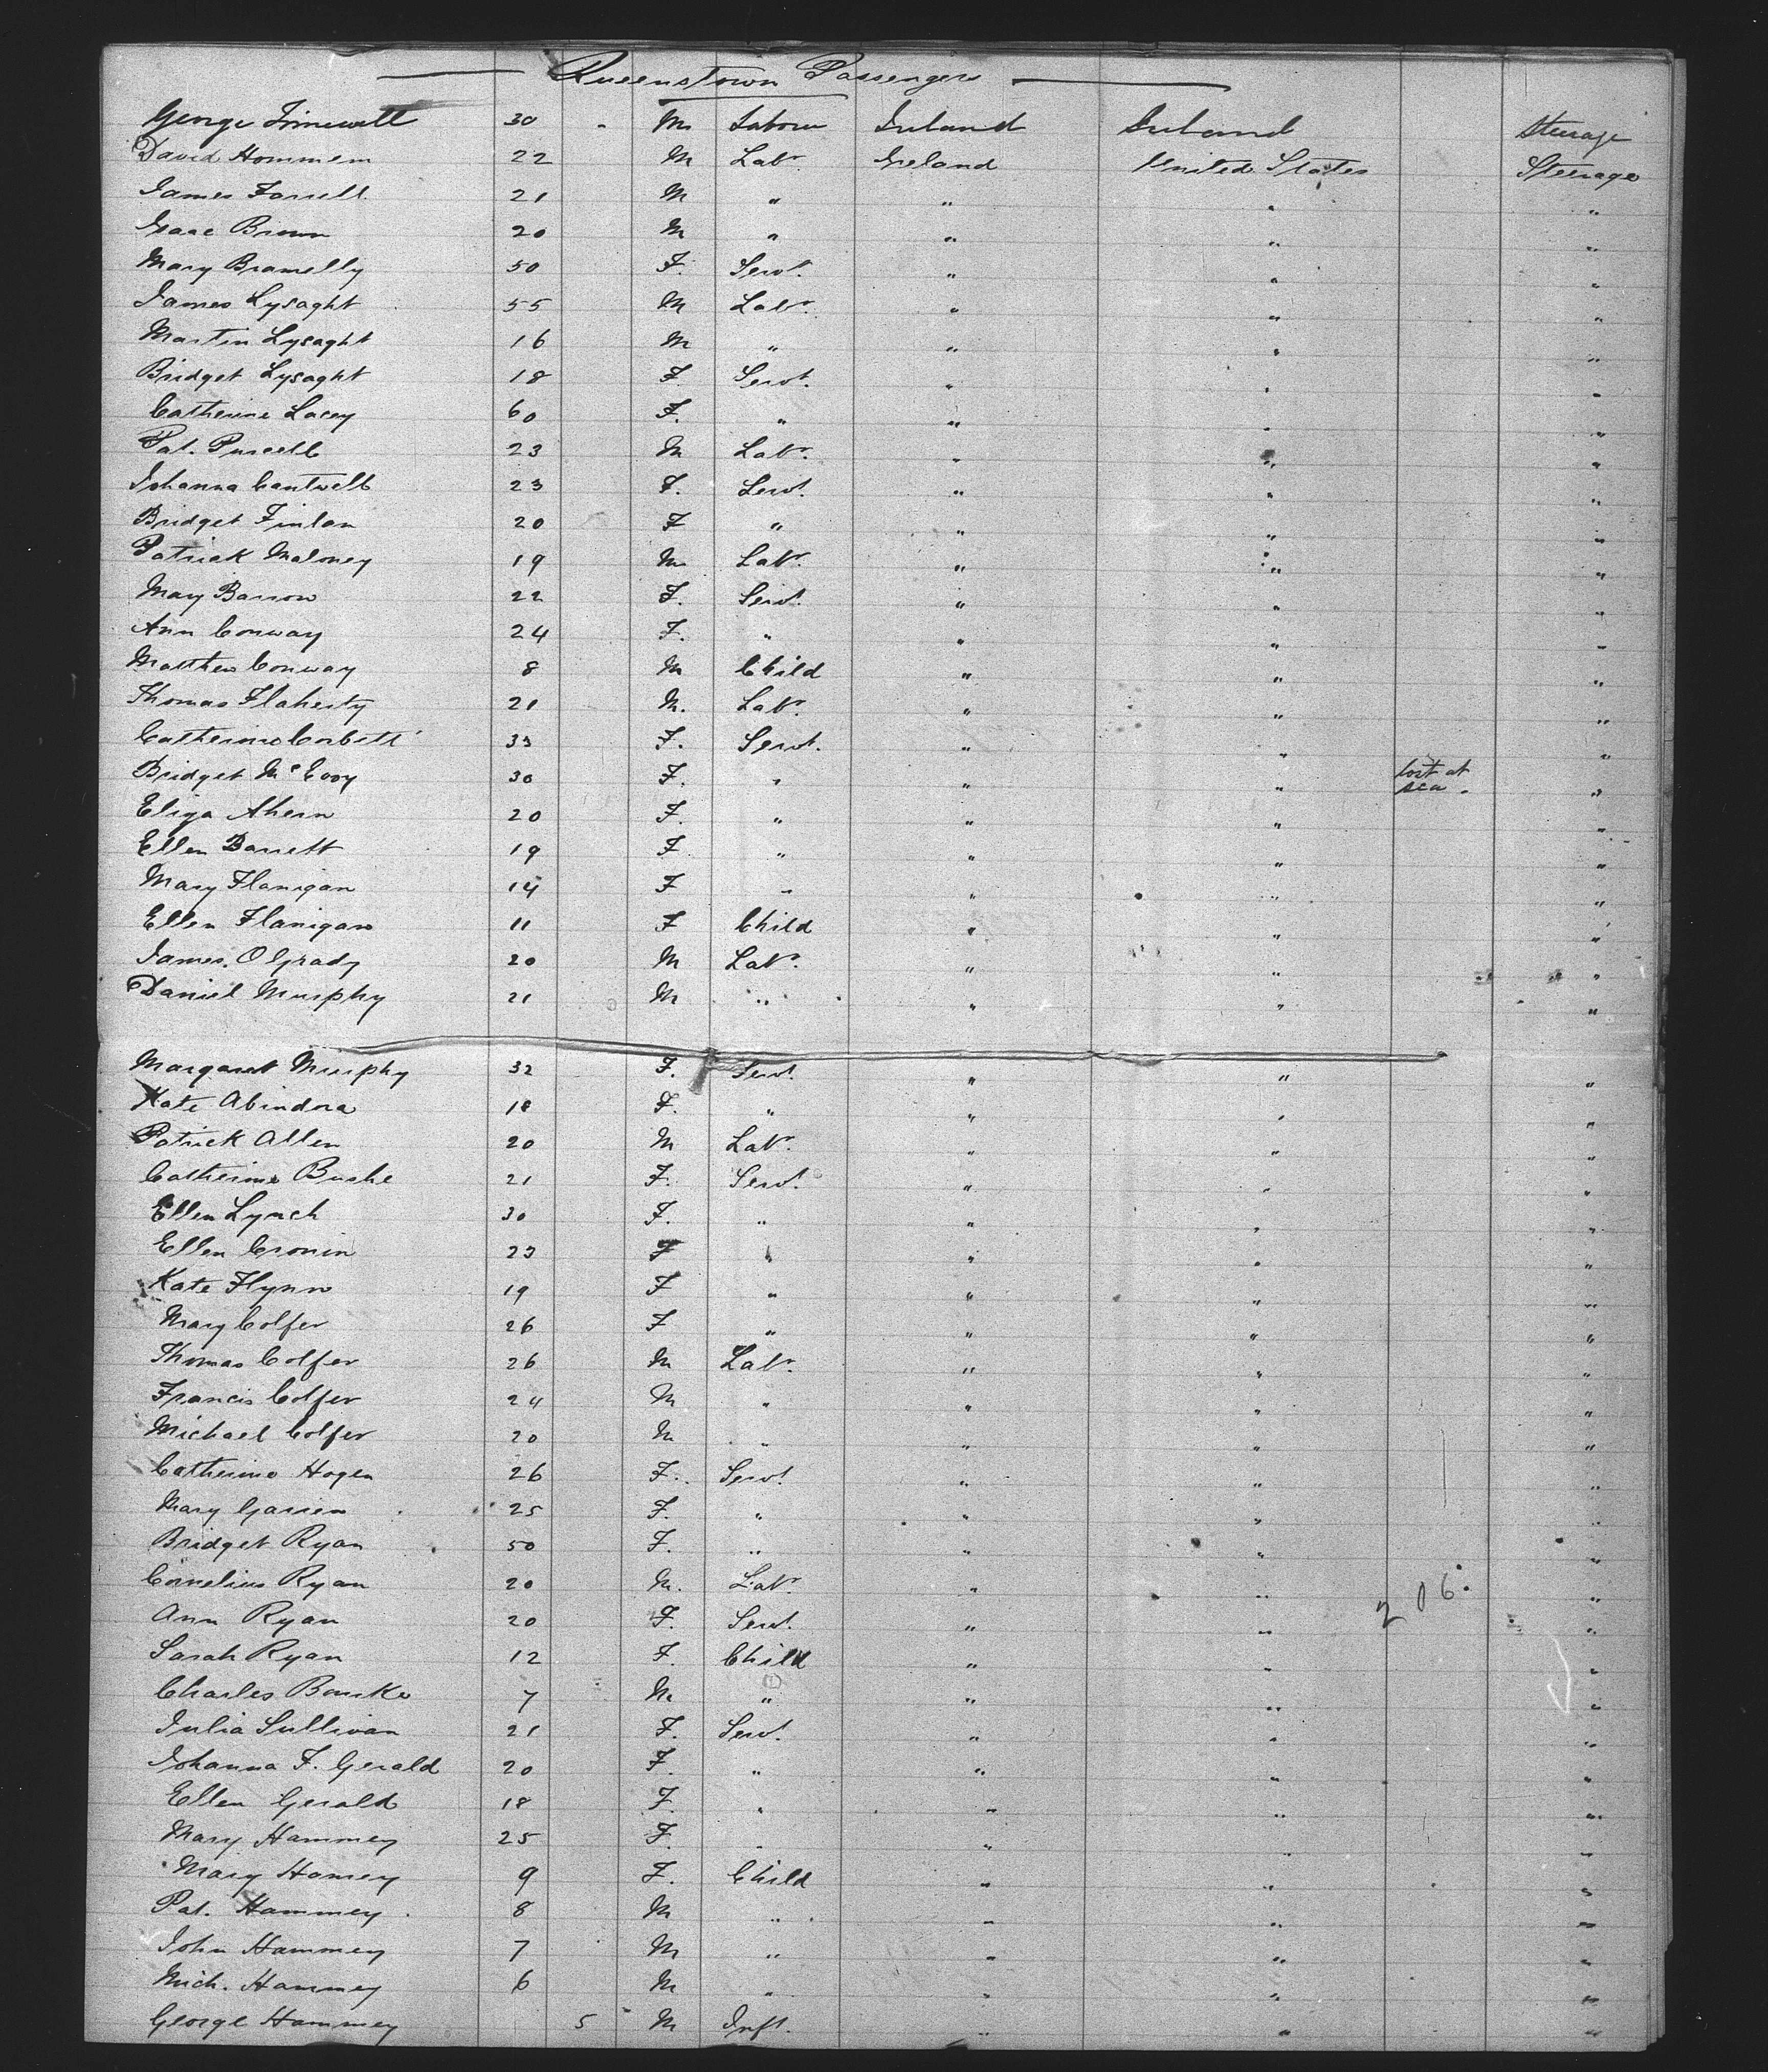 Queenstown Passengers
George 30 M Laborer Ireland Ireland Steerage
David Hommem 22 M Labr Ireland United States Steerage
James Farrell 21 M " " " "
Isaac Brown 20 M " " " "
Mary Bramelly 50 F. Servt. " " "
James Lysaght 55 M Labr. " " "
Martin Lysaght 16 M " " " "
Bridget Lysaght 18 F. Servt. " " "
Catherine Lacey 60 F. " " " "
Pat. Purcell 23 M Labr. " " "
Johanna Cantwell 23 F. Servt. " " "
Bridget Finlan 20 F " " " "
Patrick Maloney 19 M Labr. " " "
Mary Barron 22 F. Servt. " " "
Ann Conway 24 F. " " " "
Matthew Conway 8 M Child " " "
Thomas Flaherty 21 M. Labr. " " "
Catherine Corbett 33 F. Servt. " " "
Bridget McEvoy 30 F. " " " lost at sea. "
Eliza Ahern 20 F. " " " "
Ellen Barrett 19 F " " " "
Mary Flanigan 14 F " " " "
Ellen Flanigan 11 F Child " " "
James. O Grady 20 M Labr. " " "
Daniel Murphy 21 M " " " "
Margaret Murphy 32 F. Servt. " " "
Kate Abindora 18 F. " " " "
Patrick Allen 20 M Labr. " " "
Catherine Bushe 21 F. Servt. " " "
Ellen Lynch 30 F. " " " "
Ellen Cronin 23 F " " " "
Kate Flynn 19 F " " " "
Mary Colfer 26 F " " " "
Thomas Colfer 26 M Labr. " " "
Francis Colfer 24 M " " " "
Michael Colfer 20 M " " " "
Catherine Hogen 26 F. Servt. " " "
Mary 25 F. " " " "
Bridget Ryan 50 F. " " " "
Cornelius Ryan 20 M. Labr. " " 206 "
Ann Ryan 20 F. Servt. " " "
Sarah Ryan 12 F. Child " " "
Charles Bourke 7 M " " " "
Julia Sullivan 21 F. Servt. " " "
Johanna F. Gerald 20 F. " " " "
Ellen Gerald 18 F. " " " "
Mary Hammey 25 F. " " " "
Mary Hamey 9 F. Child " " "
Pat. Hammey. 8 M " " " "
John Hammey 7 M " " " "
Mich. Hammey 6 M " " " "
George Hammey 5 M Inft. " " "